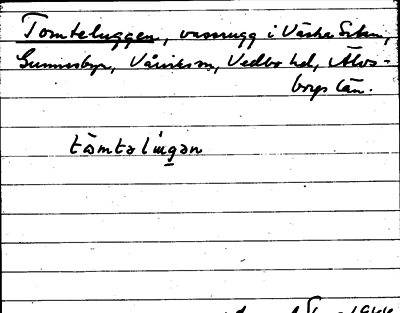 Tomteluggen, vassrugg i Västra Silen,
Gunnarsbyn, Vårviks sn, Vedbo hd, Älvs-
borgs län.
tåmtəlugən